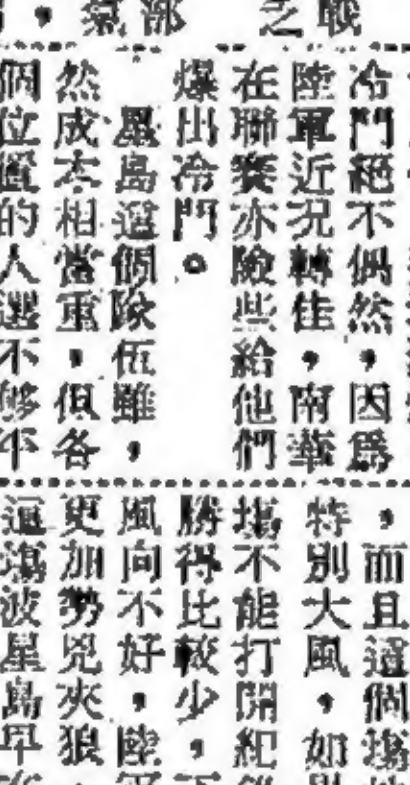 戰之
部氣
冷門絕不偶然，因爲
陸軍近況轉佳，南華
在聯賽亦險些給他們
爆出冷門。
星島這個隊伍雖，
然成本相當重，但各
個位置的人選不够平
，而且這個塲
特別大風，如
塲不能打開紀
勝得比較少，
風向不好，陸
更加勢兇夾狼
這塲波星島早